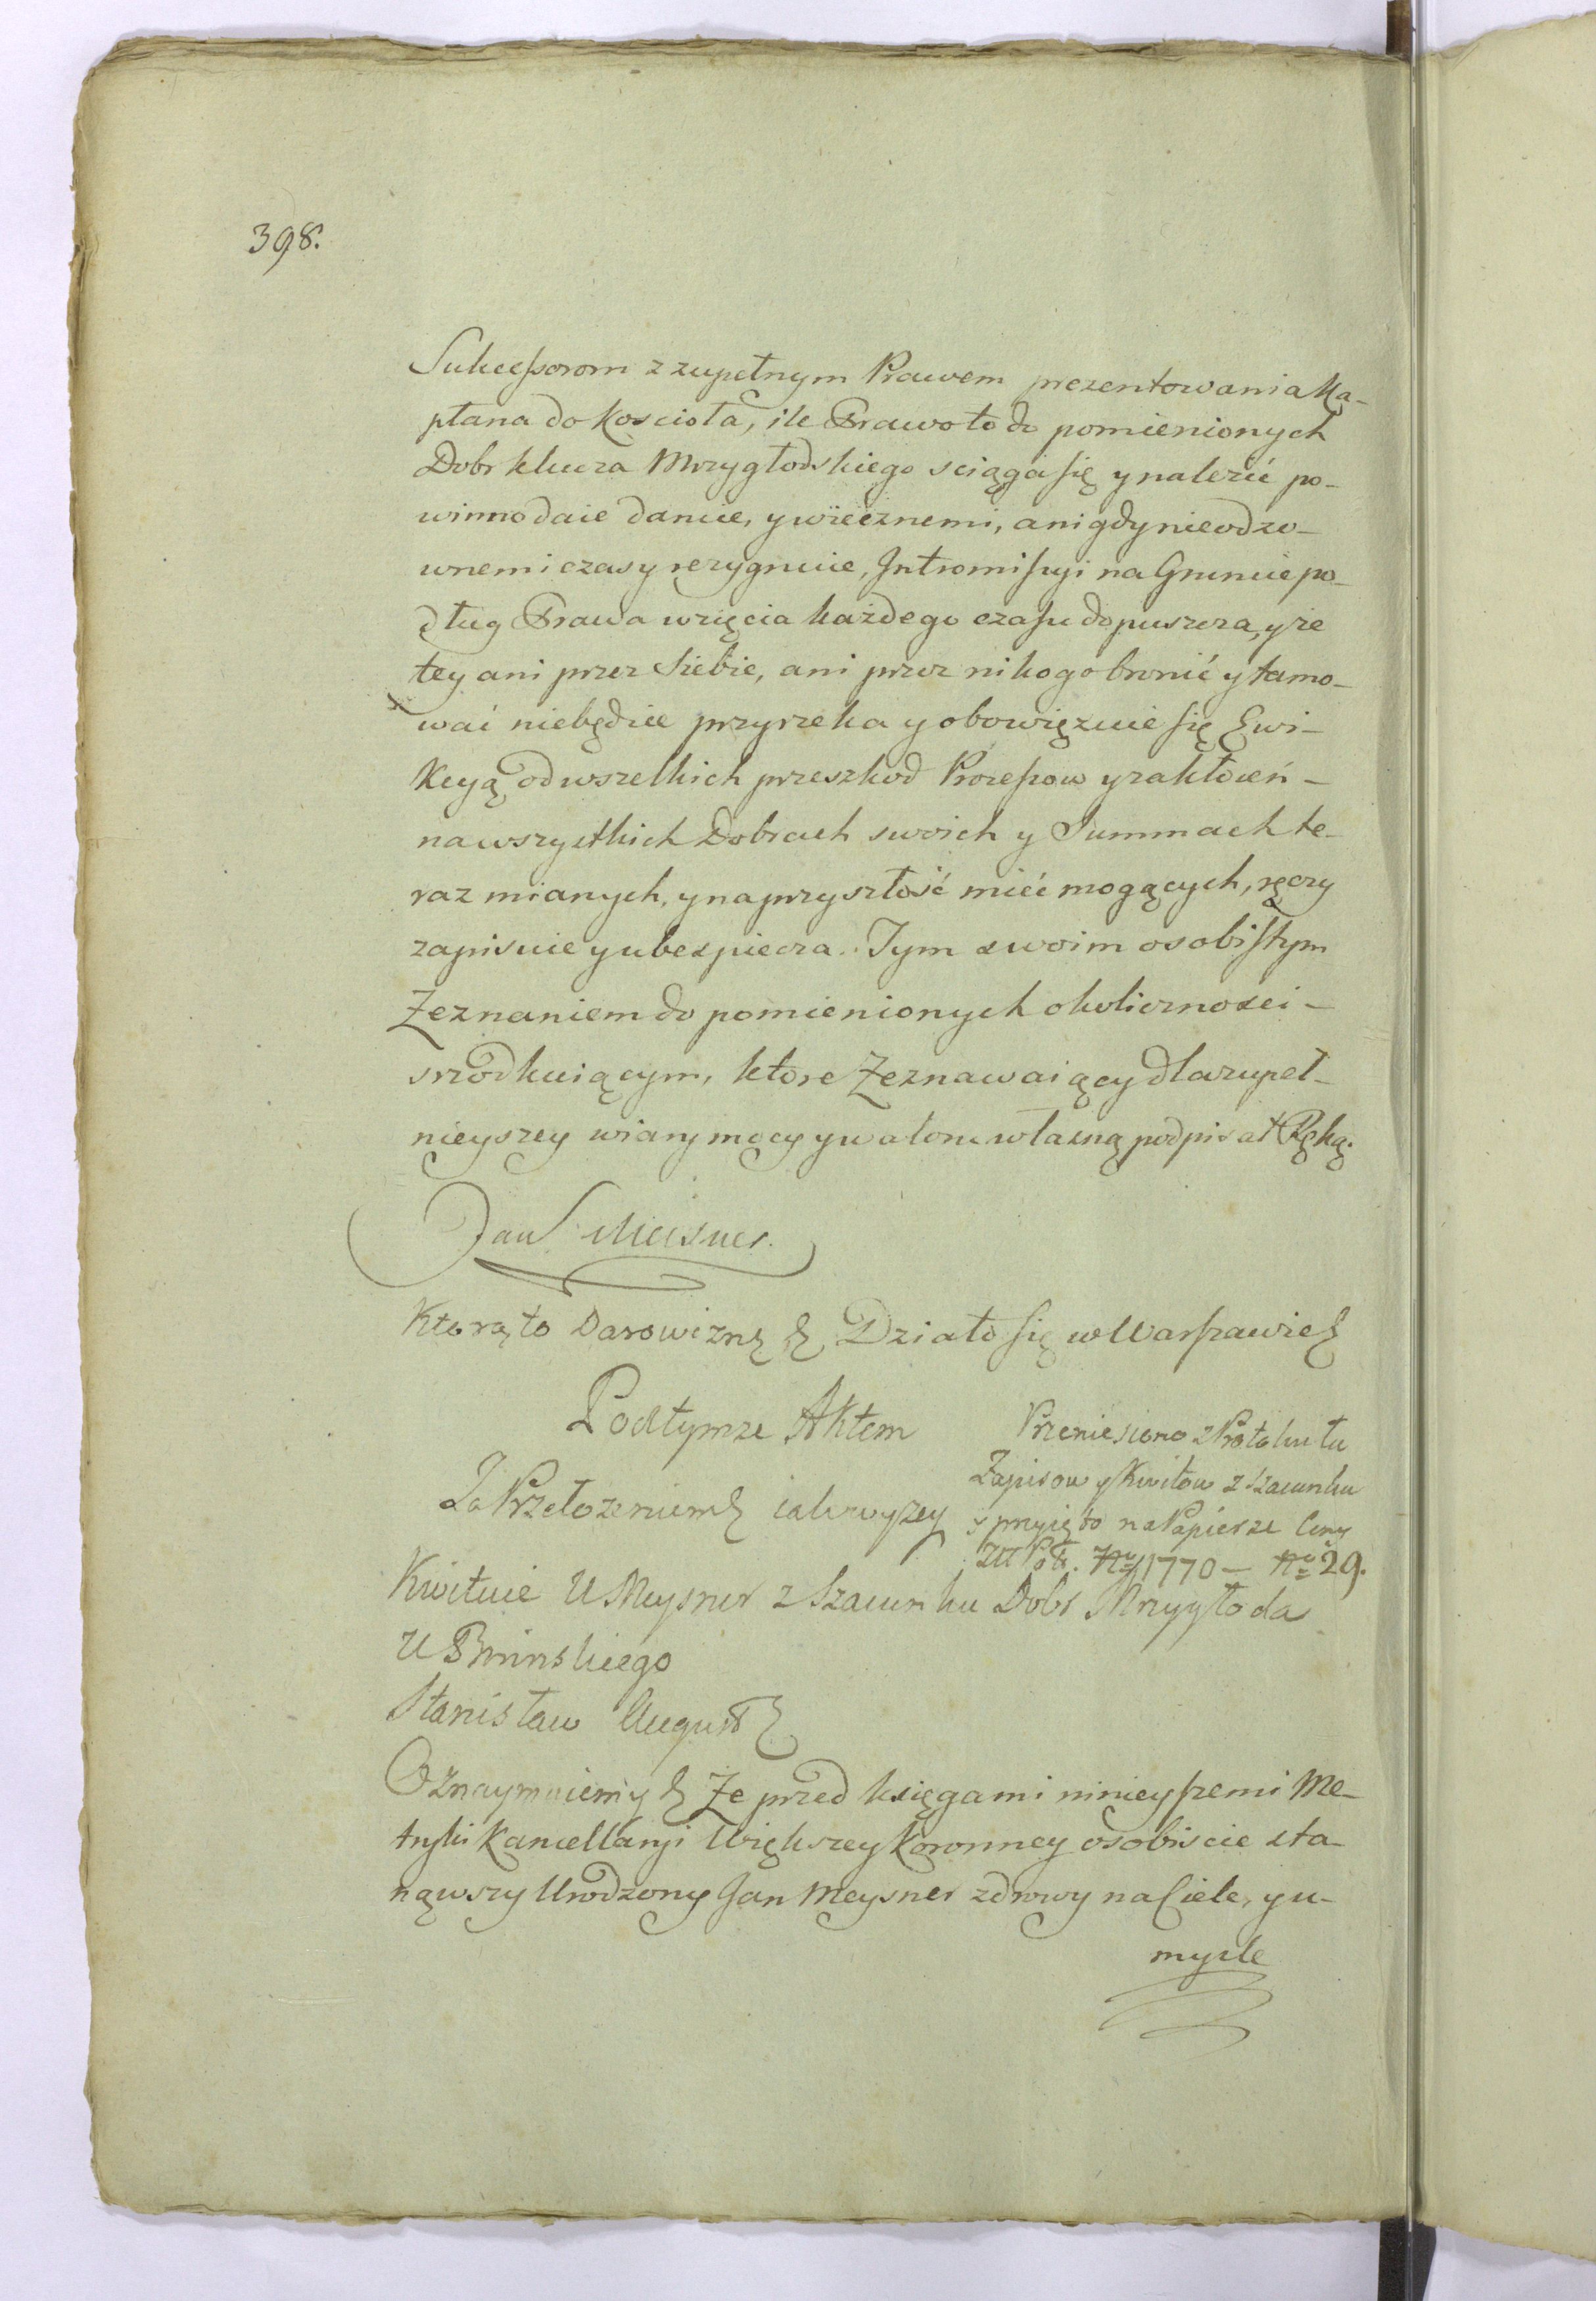 398.
Sukcessorom z zupełnym Prawem prezentowania Ka-
płana do Koscioła, ile Prawo to do pomienionych
Dobr klucza Mrzygłodskiego sciąga się y nalezić po-
winno daie daruie, y wiecznemi, a nigdy nieodzo-
wnemi czasy rezygnuie, Intromissyi na Gruncie po-
dług Prawa wzięcia każdego czasu dopuszcza, y ze
tey ani przez Siebie, ani przez nikogo bronić y tamo-
wać niebędzie przyrzeka y obowięzuie się Ewi-
kcyą od wszelkich przeszkod Processow y zakłoceń -
na wszystkich Dobrach swoich y Summach te-
raz mianych, y na przyszłość mieć mogących, ręczy
zapisuie y ubespiecza. Tym swoim osobistym
Zeznaniem do pomienionych okolicznosci -
srzodkuiącym, ktore Zeznawaiący dla zupeł-
nieyszey wiary mocy y waloru własną podpisał Ręką.
Jan Meisner.
Ktorą to Darowiznę & Działo się w Warszawie &
Pod tymze Aktem
Przeniesiono z Protokułu
Zapisow y Kwitow z Szacunku
y przyięto na Papierze Ceny
Złł Pol. Nro 1770 — Nro 29.
Za Przełożeniem & iak wyzey
Kwituie U Meysner z Szacunku Dobr Mrzygłoda
U Bminskiego
Stanisław August &
Oznaymuiemy & Ze przed księgami ninieyszemi Me-
tryki Kancellaryi Większey Koronney osobiscie sta-
nąwszy Urodzony Jan Meysner zdrowy na Ciele, y u-
mysle